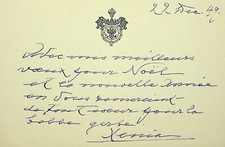 22 Dec. 49
Avec mes meilleurs
vœux pour Noël
et la nouvelle Année
en Vous remerciant
de tout cœur pour la
Xenia